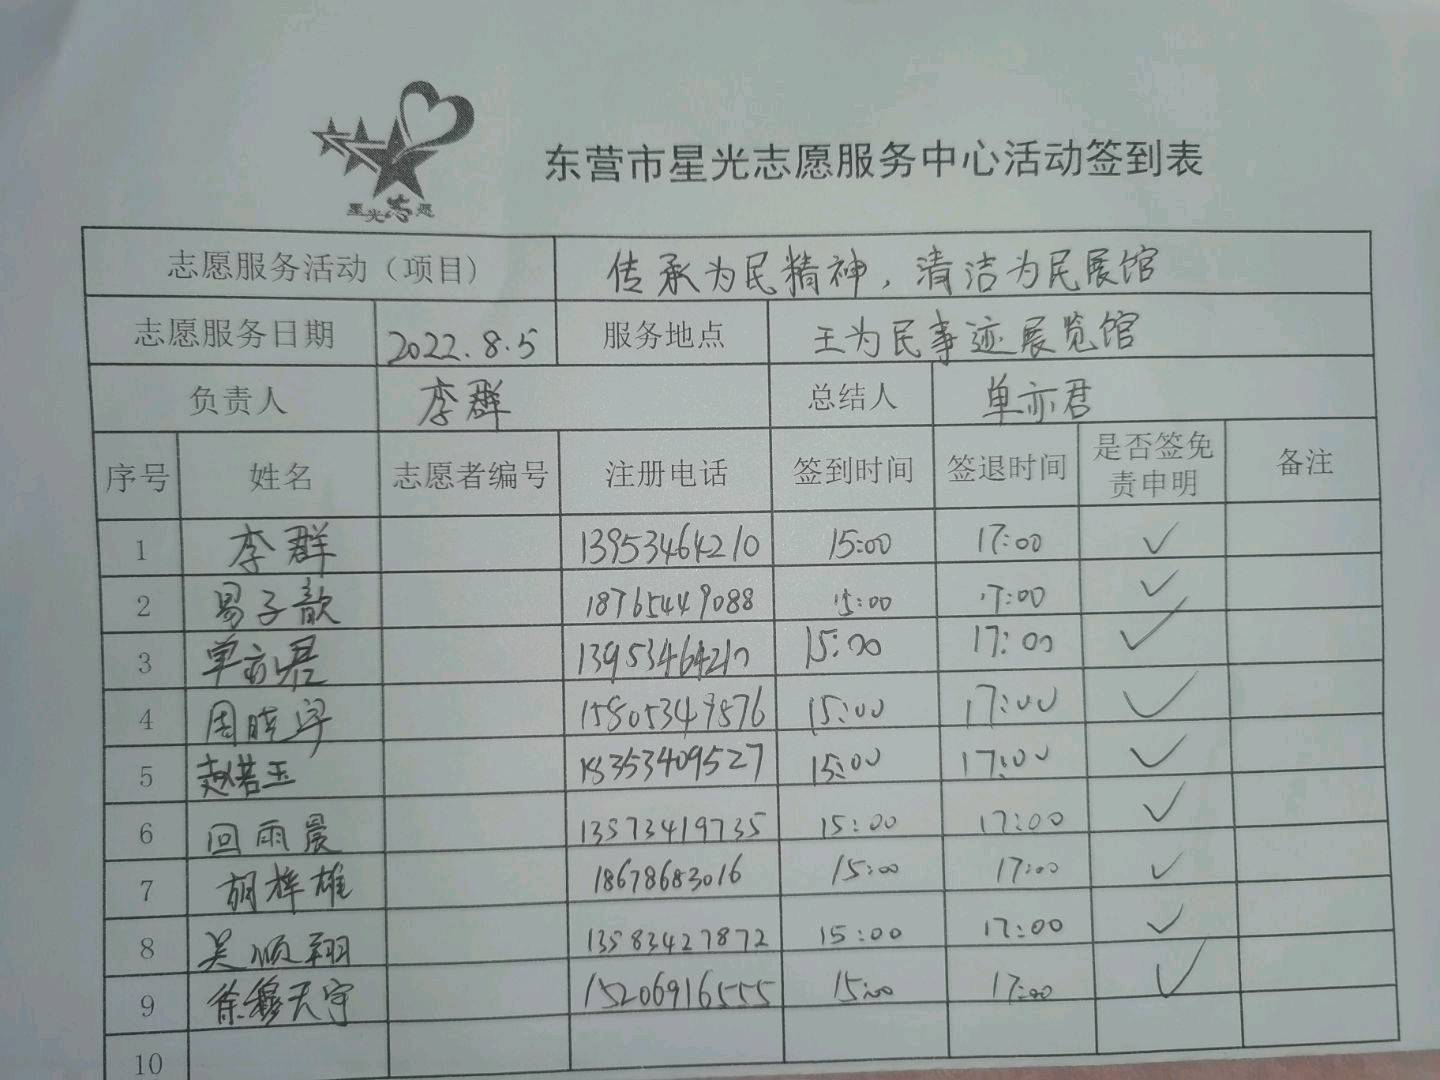 星光志愿
东营市星光志愿服务中心活动签到表
志愿服务活动（项目） 传承为民精神，清洁为民展馆
志愿服务日期 2022.8.5 服务地点 王为民事迹展览馆
负责人 李群 总结人 单亦君
序号 姓名 志愿者编号 注册电话 签到时间 签退时间 是否签免责申明 备注
1 李群 13953464210 15:00 17:00 ✓
2 易子歆 18765449088 15:00 17:00 ✓
3 单亦君 13953464210 15:00 17:00 ✓
4 周晓宇 15805349576 15:00 17:00 ✓
5 赵若玉 18353409527 15:00 17:00 ✓
6 回雨晨 13573419735 15:00 17:00 ✓
7 胡梓雄 18678683016 15:00 17:00 ✓
8 吴顺翔 13583427872 15:00 17:00 ✓
9 徐穆天宇 15206916555 15:00 17:00 ✓
10